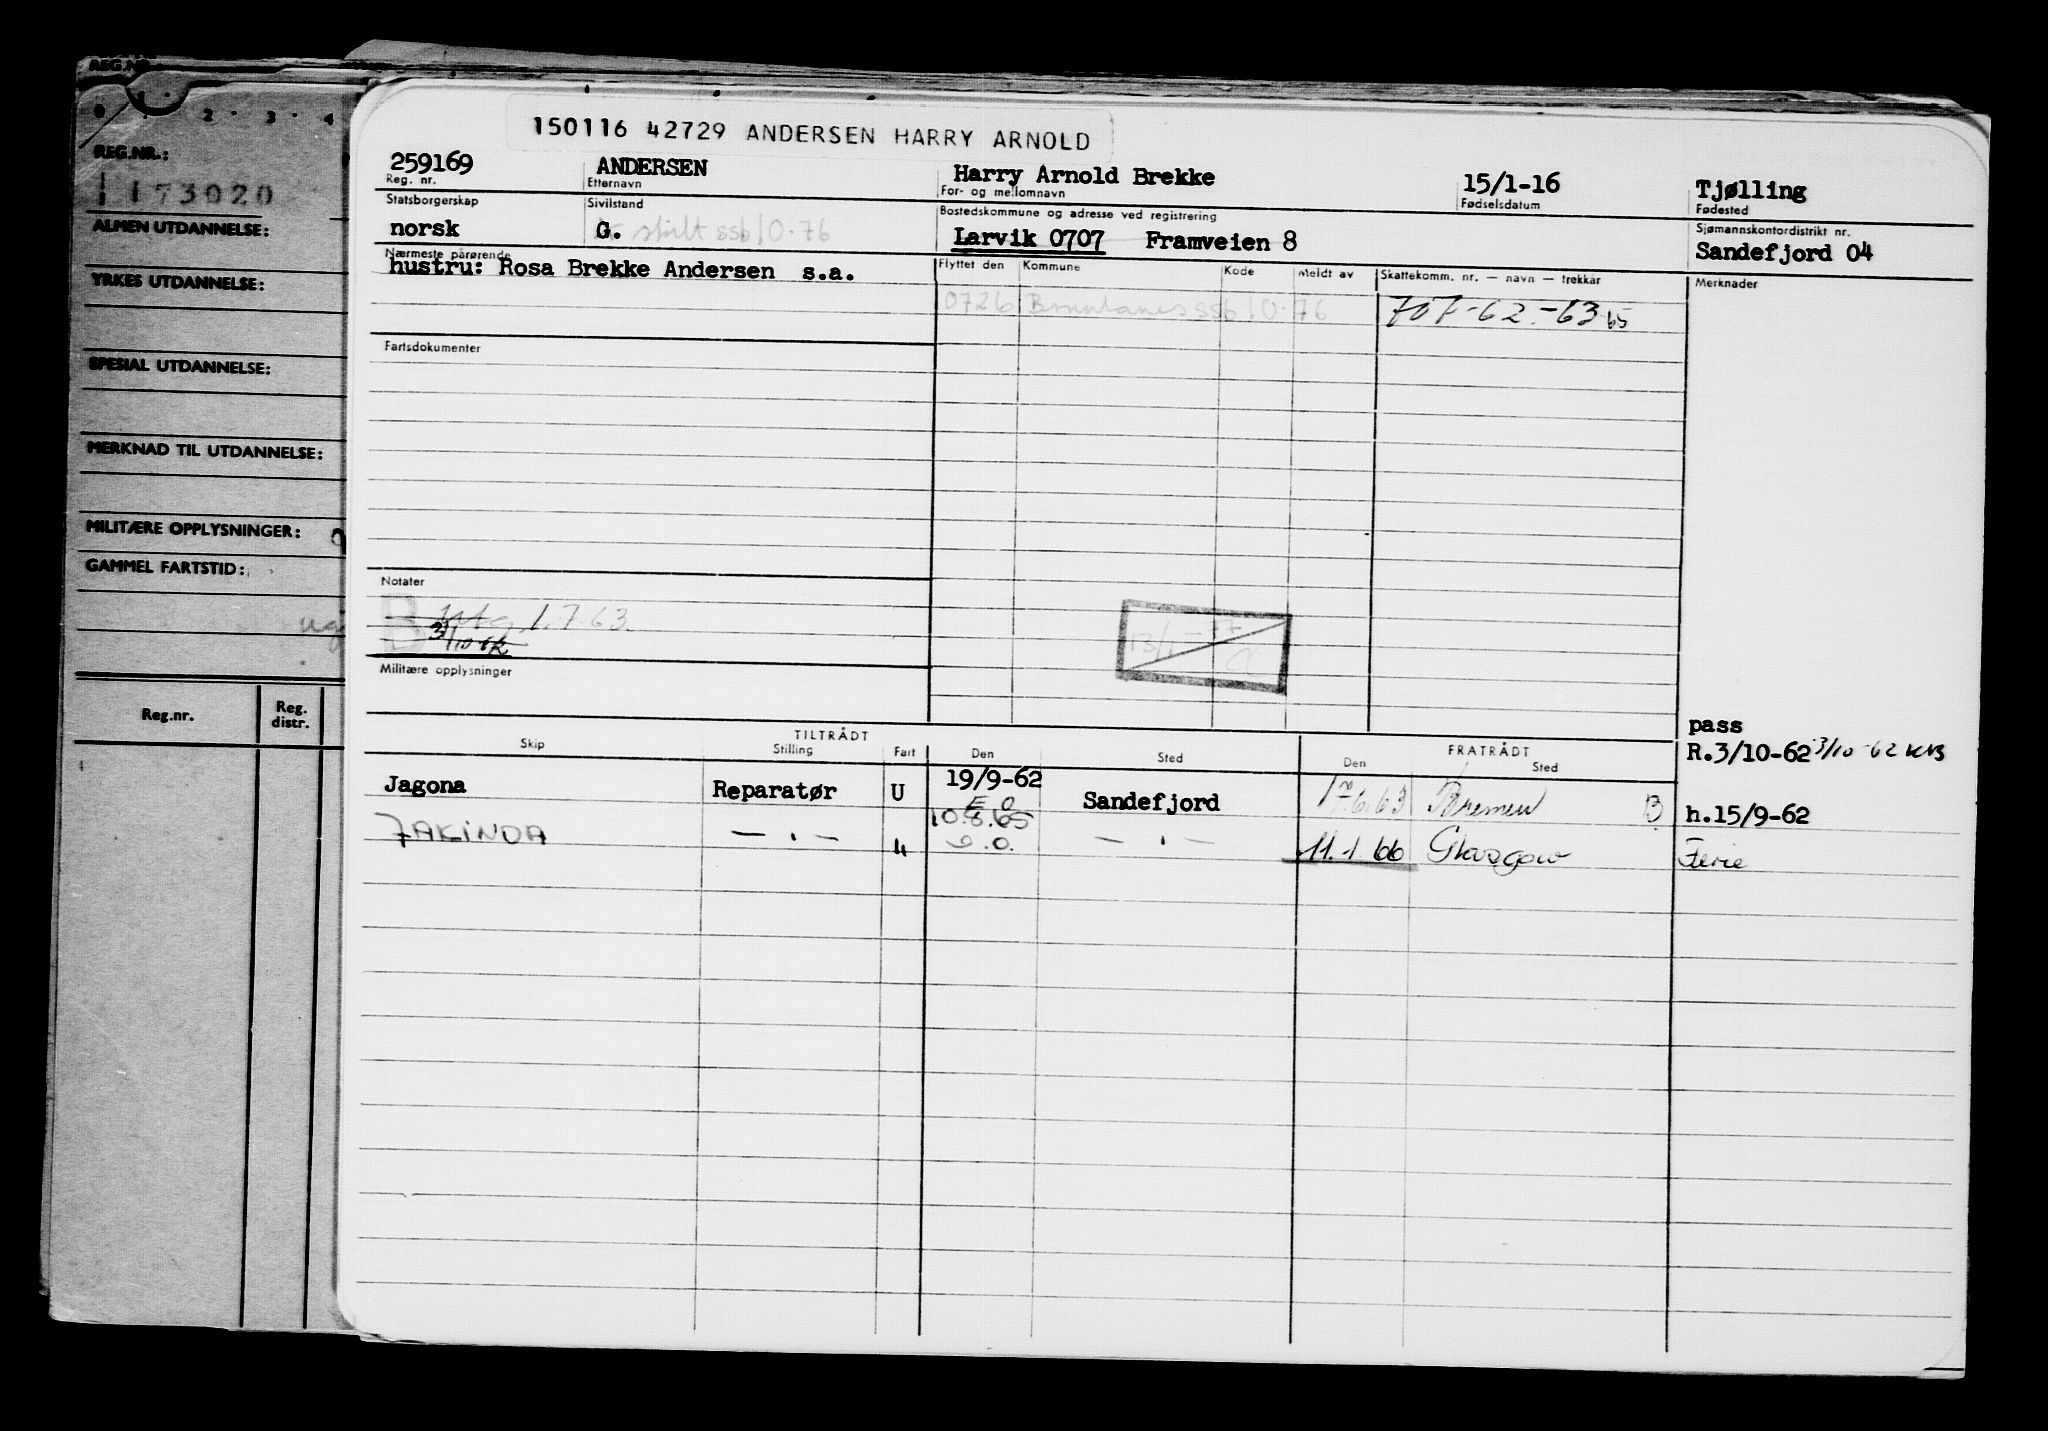 REG.NR.
0 1 2 3 4
REG.NR.:
1173020
ALMEN UTDANNELSE:
YRKES UTDANNELSE:
SPESIAL UTDANNELSE:
MERKNAD TIL UTDANNELSE:
MILITÆRE OPPLYSNINGER:
GAMMEL FARTSTID:
Reg.nr. Reg. distr.
150116 42729 ANDERSEN HARRY ARNOLD
259169 ANDERSEN Harry Arnold Brekke 15/1-16 Tjølling
Reg. nr. Etternavn For- og mellomnavn Fødselsdatum Fødested
Statsborgerskap Sivilstand Bostedskommune og adresse ved registrering Sjømannskontordistrikt nr.
norsk G. skilt ssb 10.76 Larvik 0707 Framveien 8 Sandefjord 04
Nærmeste pårørende Flyttet den Kommune Kode Meldt av Skattekomm. nr. — navn — trekkar Merknader
hustru: Rosa Brekke Andersen s.a.
0726 Brunlanes ssb 10.76 707-62-63-65
Fartsdokumenter
Notater
utg 1.7.63
3/10-62
13/1-77
Militære opplysninger
TILTRÅDT FRATRÅDT
Skip Stilling Fart Den Sted Den Sted
pass
R.3/10-62 3/10-62
Jagona Reparatør U 19/9-62 Sandefjord 17.6.63 Bremen B h.15/9-62
E O
JAKINDA — " — " 10.8.65 — " — 11.1.66 Glasgow Ferie